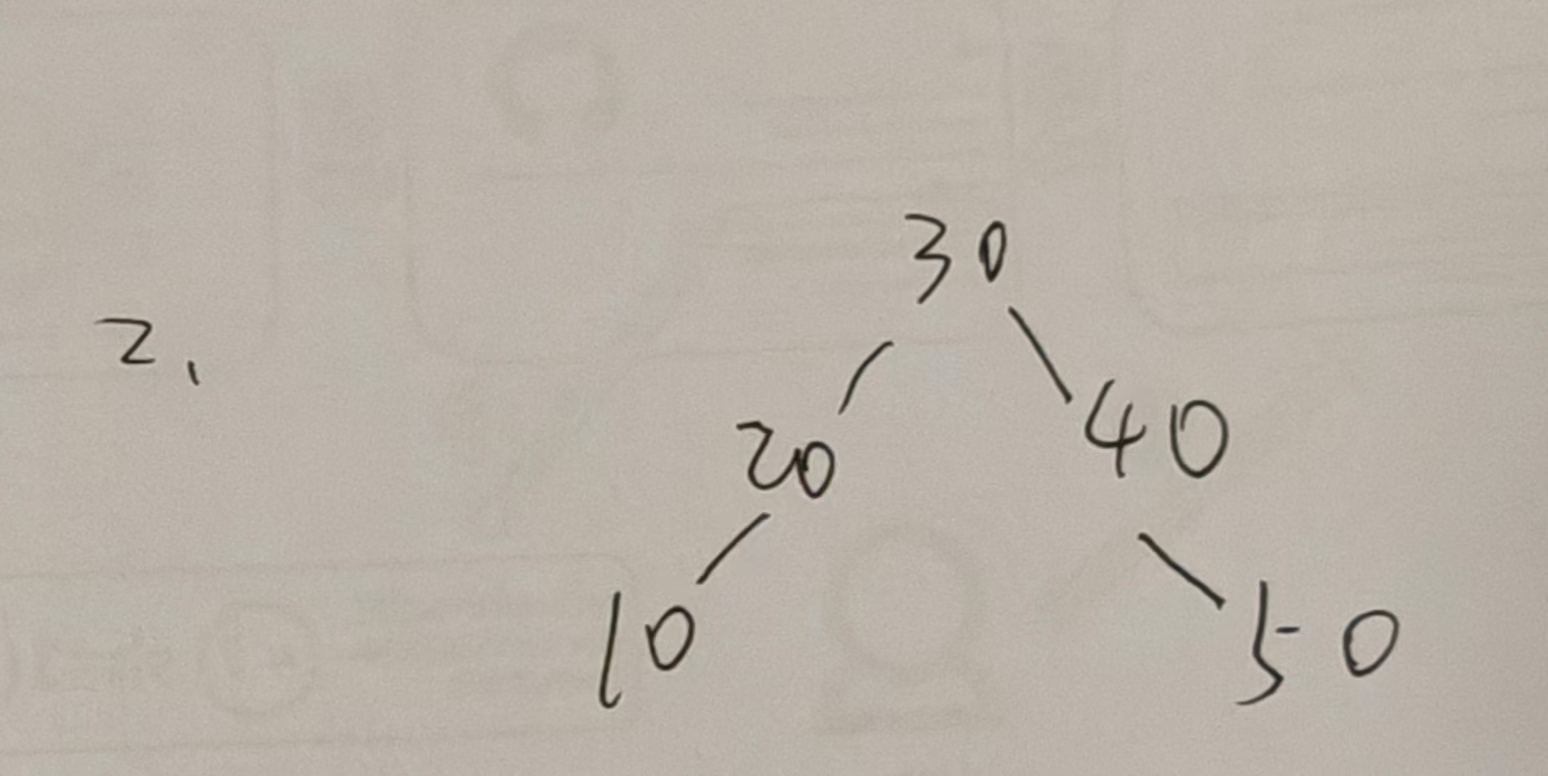 30
2.
20 40
10 50